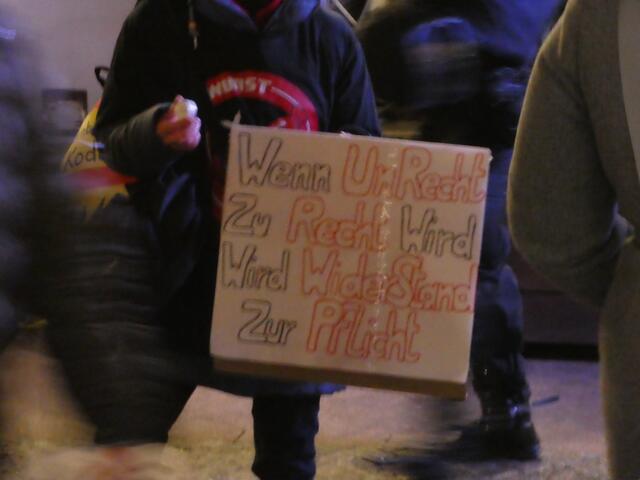 Wenn UnRecht
Zu Recht Wird
Wird WiderStand
Zur Pflicht